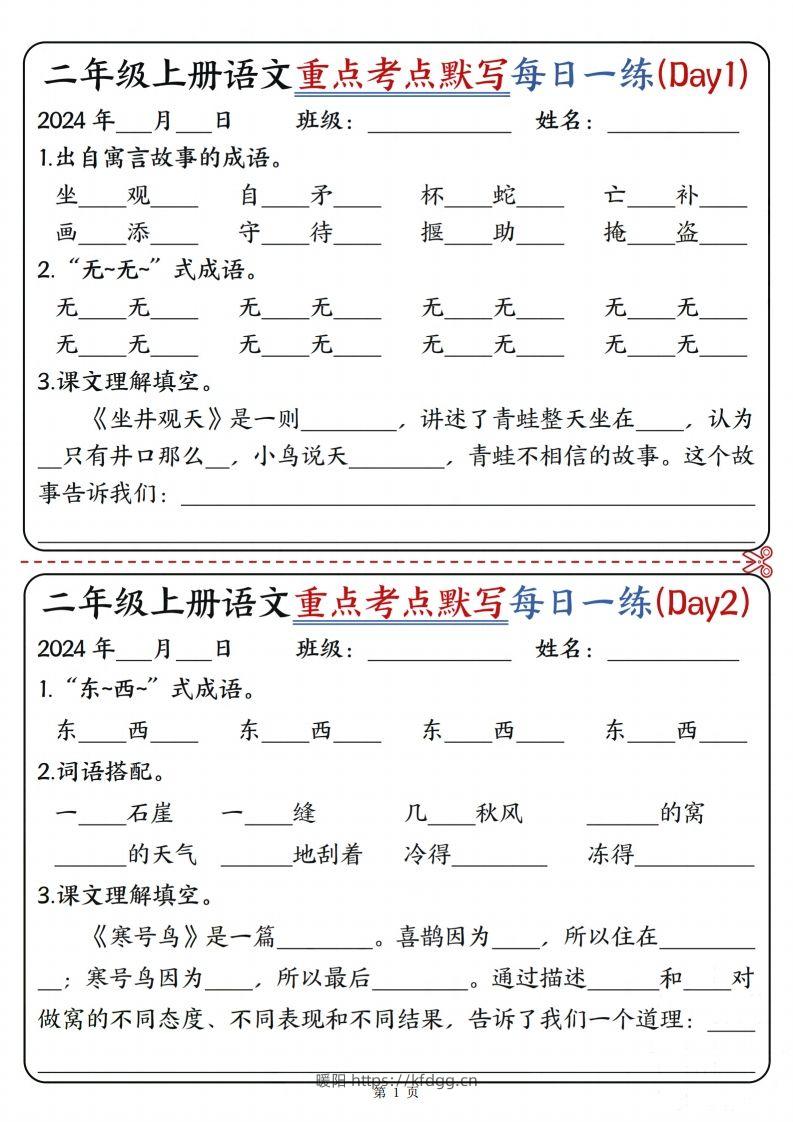 二年级上册语文重点考点默写每日一练(Day1)
2024 年___月___日 班级：____________ 姓名：___________
1.出自寓言故事的成语。
坐____观____ 自____矛____ 杯____蛇____ 亡____补____
画____添____ 守____待____ 揠____助____ 掩____盗____
2.“无~无~”式成语。
无____无____ 无____无____ 无____无____ 无____无____
无____无____ 无____无____ 无____无____ 无____无____
3.课文理解填空。
《坐井观天》是一则________，讲述了青蛙整天坐在____，认为
__只有井口那么__，小鸟说天________，青蛙不相信的故事。这个故
事告诉我们：________________________________________________
____________________________________________________________
二年级上册语文重点考点默写每日一练(Day2)
2024 年___月___日 班级：____________ 姓名：___________
1.“东~西~”式成语。
东____西____ 东____西____ 东____西____ 东____西____
2.词语搭配。
一____石崖 一____缝 几____秋风 ______的窝
______的天气 ______地刮着 冷得________ 冻得__________
3.课文理解填空。
《寒号鸟》是一篇________。喜鹊因为____，所以住在________
__；寒号鸟因为____，所以最后________。通过描述______和____对
做窝的不同态度、不同表现和不同结果，告诉了我们一个道理：____
____________________________________________________________
暖阳 https://kfdgg.cn
第 1 页